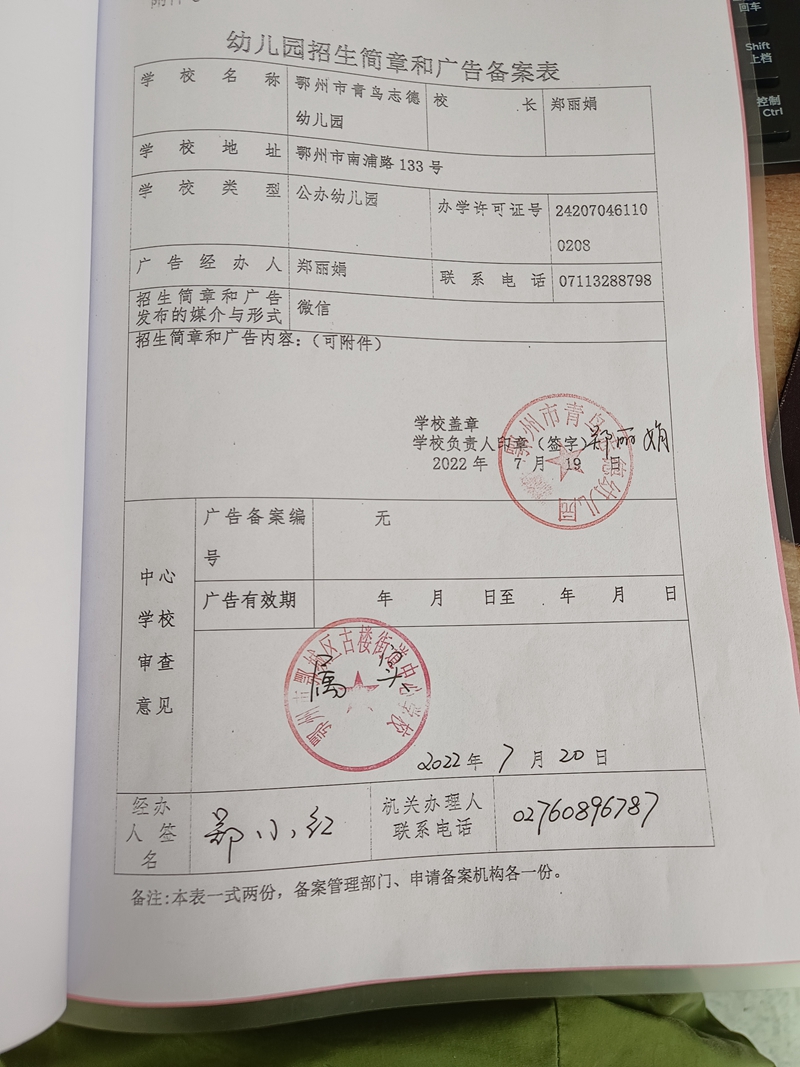 幼儿园招生简章和广告备案表
学校名称 鄂州市青鸟志德幼儿园 校长 郑丽娟
学校地址 鄂州市南浦路133号
学校类型 公办幼儿园 办学许可证号 242070461100208
广告经办人 郑丽娟 联系电话 07113288798
招生简章和广告发布的媒介与形式 微信
招生简章和广告内容：（可附件）
学校盖章
学校负责人印章（签字）郑丽娟
2022年 7月 19日
鄂州市青鸟志德幼儿园
中心学校审查意见
广告备案编号 无
广告有效期 年 月 日至 年 月 日
属实
鄂州市鄂城区古楼街道中心学校
2022年 7月 20日
经办人签名 郑小红 机关办理人联系电话 02760896787
备注：本表一式两份，备案管理部门、申请备案机构各一份。
回车
Shift
上档
控制
Ctrl